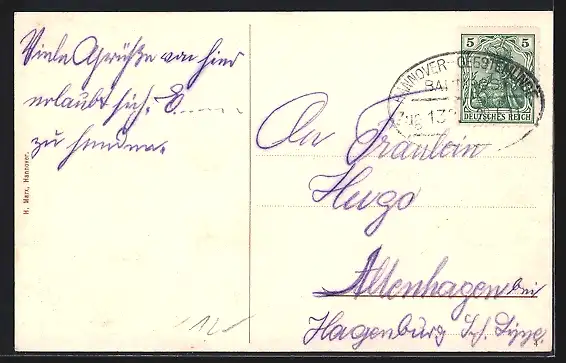 Viele Grüße von hier
erlaubt sich, E.
zu senden.
H. Marx, Hannover.
5 5
DEUTSCHES REICH
HANNOVER - GEESTEMÜNDE
BAHNPOST
An Fräulein
Hugo
Altenhagen bei
Hagenburg Sch. Lippe.
12